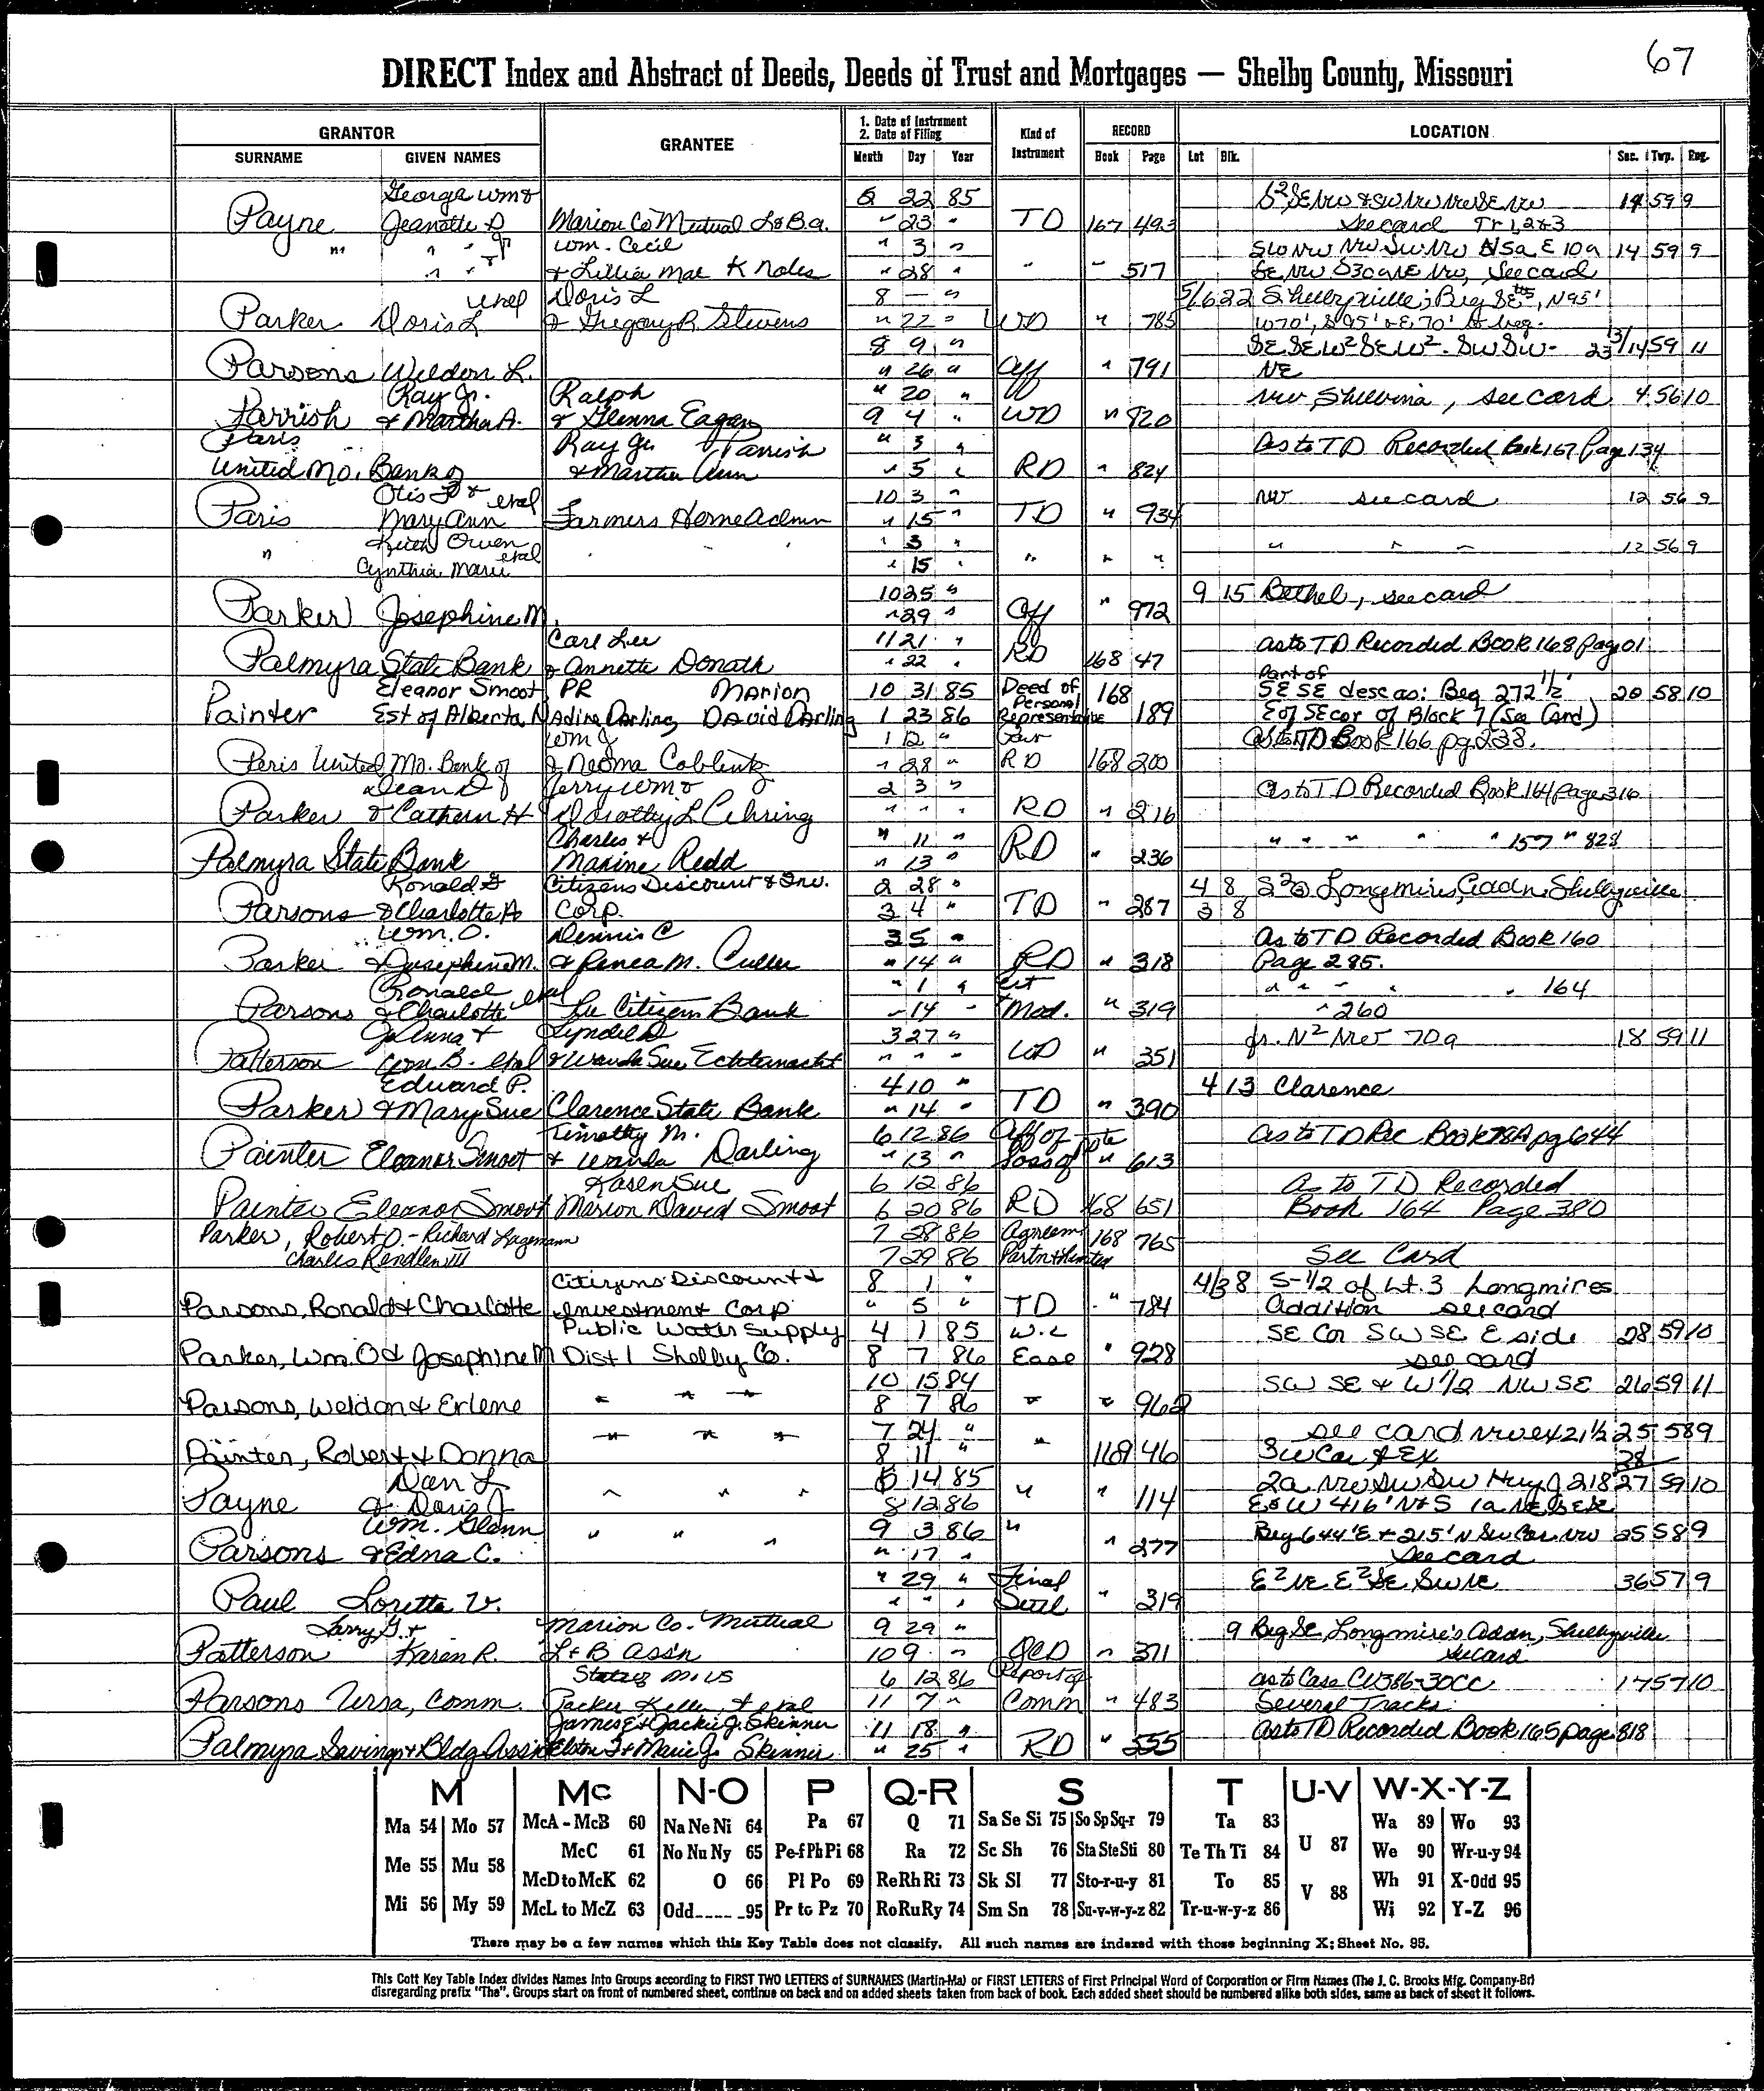 67
DIRECT Index and Abstract of Deeds, Deeds of Trust and Mortgages — Shelby County, Missouri
GRANTOR GRANTEE 1. Date of Instrument 2. Date of Filing Kind of Instrument RECORD LOCATION
SURNAME GIVEN NAMES Month Day Year Book Page Lot Blk. Sec. Twp. Rng.
George Wm & 22 85 14 59 9
Payne Jeanette D Marion Co Mutual L & B a. " 23 " TD 167 493 see card Tr 1, 2 & 3
" " " Jr Wm. Cecil " 3 " SW NW NW SW NW N 5a E 10a 14 59 9
" " & Lillie Mae Knoles " 28 " " " 517 See card
etal Doris L 8 — " 5/6 22 Shelbyville; Beg SE, N 95'
Parker Doris L & Gregory R. Stevens " 22 " WD " 785 W 70', S 95' & E 70' to beg.
8 9 " SE SE W² SE W². SW SW- 23 13/14 59 11
Parsons Weldon L. " 26 " Aff " 791 NE
Ray Jr. Ralph " 20 " NW Shelbina, see card 4 56 10
Parrish & Martha A. & Glenna Eagan 9 4 " WD " 820
Paris Ray Jr. Parrish " 3 " As to TD Recorded Book 167 Page 134
United Mo. Bank of & Martha Ann " 5 " RD " 824
Otis D & etal 10 3 " NW see card 12 56 9
Paris Mary Ann Farmers Home Admn " 15 " TD " 934
Keith Owen " 3 " " " " 12 56 9
" Cynthia Marie etal " 15 " " " "
10 25 " 9 15 Bethel, see card
Parker Josephine M. " 29 " Aff " 972
Carl Lee 11 21 " as to TD Recorded Book 168 Page 01
Palmyra State Bank & Annette Donath " 22 " RD 168 47
Part of
Eleanor Smoot, PR Marion 10 31 85 Deed of Personal 168 SE SE desc as: Beg 272 1/2' 20 58 10
Painter Est of Alberta Nadine Darling David Darling 1 23 86 Representative 189 E of SE cor of Block 7 (See Card)
Wm J 1 2 " as to TD Book 166 pg 238.
Paris United Mo. Bank of & Neoma Coblentz " 28 " RD 168 200
Dean D Jerry Wm & 2 3 " As to TD Recorded Book 164 page 316
Parker & Cathern H Dorothy L Gehring " " " RD " 216
Charles & " 11 " " " " " " 157 " 828
Palmyra State Bank Maxine Redd " 13 " RD " 236
Ronald G Citizens Discount & Inv. 2 28 " 4 8 S² 3 Longmires Addn. Shelbyville
Parsons & Charlotte A Corp. 3 4 " TD " 287 3 8
Wm. O. Dennis C 3 5 " As to TD Recorded Book 160
Parker & Josephine M. & Renea M. Culler " 14 " RD " 318 Page 285.
Ronald " 1 " " " " " " 164
Parsons & Charlotte etal The Citizens Bank " 14 " Mod. " 319 " 260
JoAnna & Lyndell D 3 27 " fr. N² NW 70a 18 59 11
Patterson Wm. B. etal & Wanda Sue Echternacht " " " WD " 351
Edward P. 4 10 " 4 13 Clarence
Parker & Mary Sue Clarence State Bank " 14 " TD " 390
Timothy M. 6 12 86 Aff of Note As to TD Rec Book pg 644
Painter Eleanor Smoot & Wanda Darling " 13 " Loss of " 613
Karen Sue 6 12 86 As to TD Recorded
Painter Eleanor Smoot Marion David Smoot 6 20 86 RD 168 651 Book 164 Page 380
Parker, Robert O. - Richard Lagemann 7 28 86 Agreem 168
Charles Rendlen III 7 29 86 765 See Card
Citizens Discount & 8 1 " 4/3 8 S-1/2 of Lt. 3 Longmires
Parsons, Ronald & Charlotte Investment Corp " 5 " TD " 784 Addition see card
Public Water Supply 4 1 85 W.L SE Cor SW SE E side 28 59 10
Parker, Wm. O & Josephine M Dist 1 Shelby Co. 8 7 86 Ease " 928 see card
10 15 84 SW SE & W 1/2 NW SE 26 59 11
Parsons, Weldon & Erlene " " " 8 7 86 " " 962
" " " 7 24 " see card NW ex 21 1/2 25 58 9
Painter, Robert & Donna 8 11 " " 169 46 SW Cor & Ex
Dan L 14 85 2a NW SW SW Hwy J 218 27 59 10
Payne & Doris J " " " 8 12 86 " " 114 E & W 416' N & S 1a
Wm. Glenn 9 3 86 " Beg 644' E & 215' N SW Cor NW 25 58 9
Parsons & Edna C. " " " " 17 " " 277 see card
" 29 " Final E² NE E² SE SW NE 36 57 9
Paul Loretta V. " " " Setl " 319
Larry G. & Marion Co. Mutual 9 29 " 9 Beg SE Longmire's Addn, Shelbyville
Patterson Karen R. L & B Ass'n 10 9 " QCD " 371 see card
State of Mi vs 6 12 86 Report of as to Case CV386-30CC 17 57 10
Parsons Ursa, Comm. Packer Keller & etal 11 7 " Comm " 483 Several Tracks
James E & Jackie J. Skinner 11 18 " as to TD Recorded Book 165 page 818
Palmyra Savings & Bldg Ass'n Elston F & Marie J. Skinner " 25 " RD " 555
M Mc N-O P Q-R S T U-V W-X-Y-Z
Ma 54 Mo 57 McA - McB 60 Na Ne Ni 64 Pa 67 Q 71 Sa Se Si 75 So Sp Sq-r 79 Ta 83 U 87 Wa 89 Wo 93
Me 55 Mu 58 McC 61 No Nu Ny 65 Pe-f Ph Pi 68 Ra 72 Sc Sh 76 Sta Ste Sti 80 Te Th Ti 84 We 90 Wr-u-y 94
McD to McK 62 O 66 Pl Po 69 Re Rh Ri 73 Sk Sl 77 Sto-r-u-y 81 To 85 V 88 Wh 91 X-Odd 95
Mi 56 My 59 McL to McZ 63 Odd---- -95 Pr to Pz 70 Ro Ru Ry 74 Sm Sn 78 Su-v-w-y-z 82 Tr-u-w-y-z 86 Wi 92 Y-Z 96
There may be a few names which this Key Table does not classify. All such names are indexed with those beginning X; Sheet No. 95.
This Cott Key Table Index divides Names Into Groups according to FIRST TWO LETTERS of SURNAMES (Martin-Ma) or FIRST LETTERS of First Principal Word of Corporation or Firm Names (The J. C. Brooks Mfg. Company-Br)
disregarding prefix "The". Groups start on front of numbered sheet, continue on back and on added sheets taken from back of book. Each added sheet should be numbered alike both sides, same as back of sheet it follows.